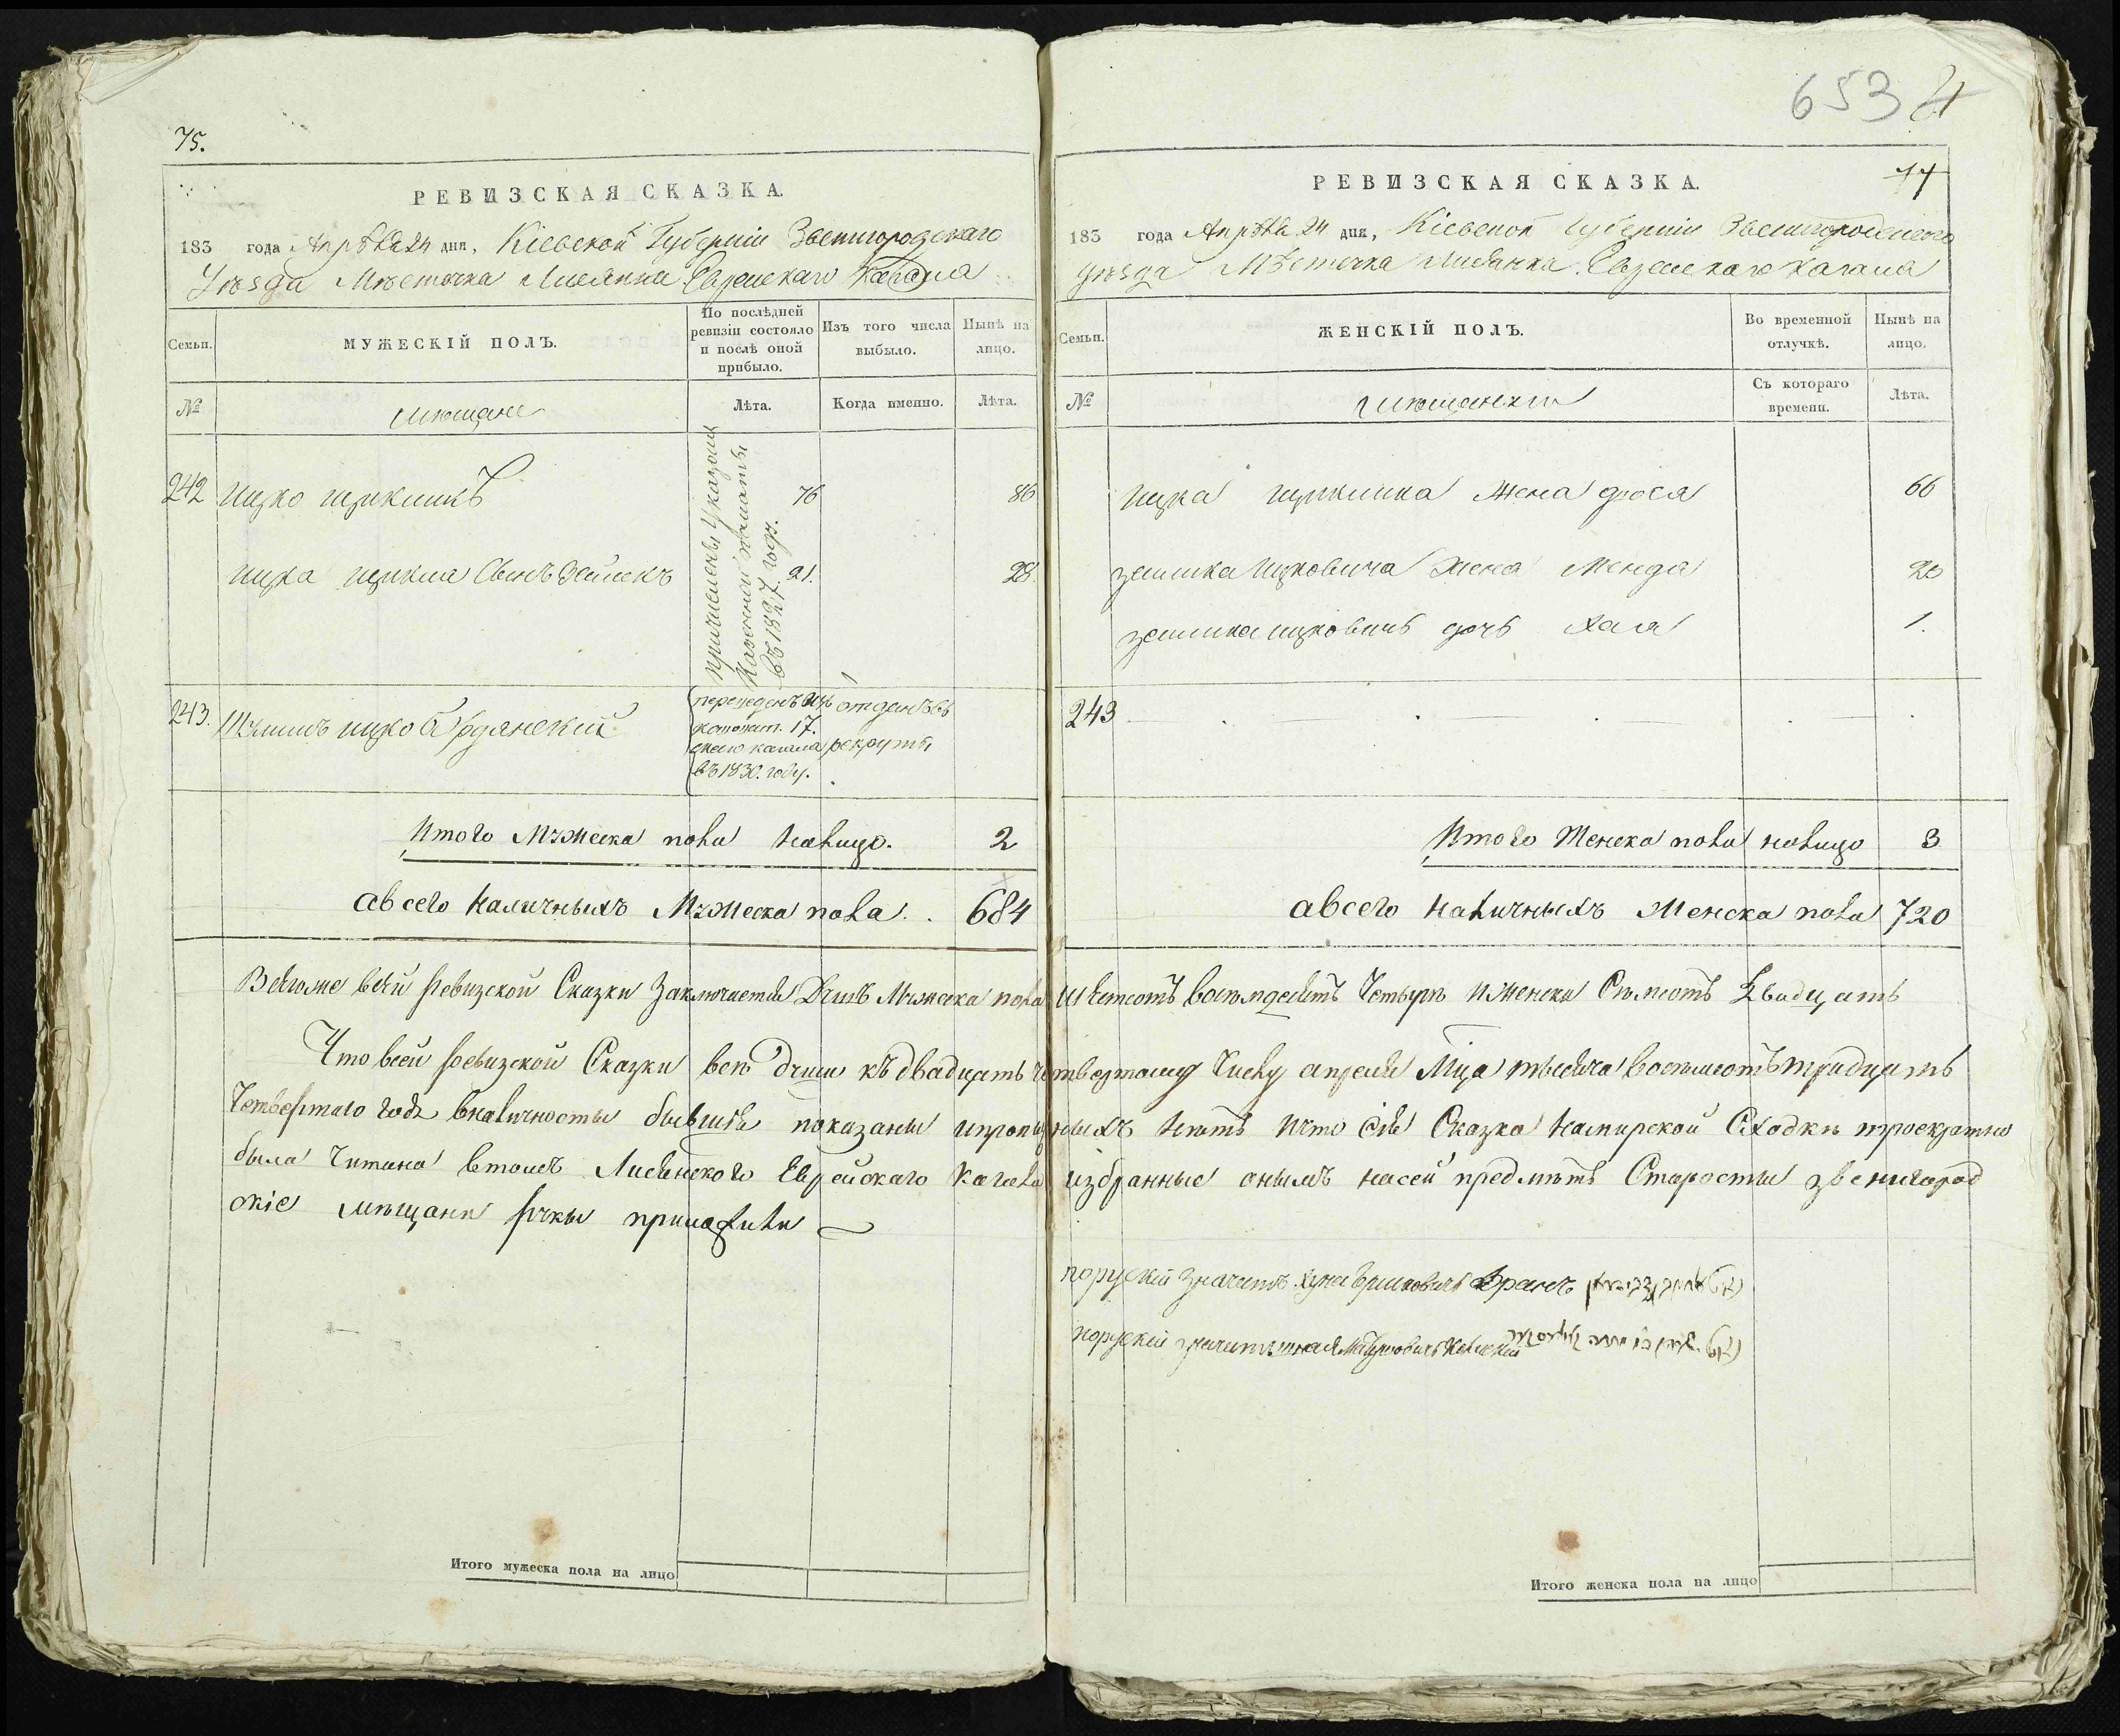 75.
РЕВИЗСКАЯ СКАЗКА.
183 года Апрѣля 24 дня, Кіевской Губерніи Звенигородскаго
Уѣзда Мѣстечка Лисянки Еврейскаго Кагала
Семьи.
МУЖЕСКІЙ ПОЛЪ.
По послѣдней ревизіи состояло и послѣ оной прибыло.
Изъ того числа выбыло.
Нынѣ на лицо.
№
мѣщане
Лѣта.
Когда именно.
Лѣта.
причислены Указомъ
Казенной палаты
въ 1827 годѣ.
242 Ицко 76 86
Ицка Сынъ Зейликъ 21. 28
243. Шмулъ Ицко
переведенъ изъ
17.
кагала
въ 1830. году.
отданъ въ
рекруты
Итого Мужеска пола налицо. 2
а всего наличныхъ Мужеска пола . . 684
653
РЕВИЗСКАЯ СКАЗКА.
183 года Апрѣля 24 дня, Кіевской Губерніи Звенигородскаго
Уѣзда Мѣстечка Лисянка Еврейскаго Кагала
Семьи.
ЖЕНСКІЙ ПОЛЪ.
Во временной отлучкѣ.
Нынѣ на лицо.
№
мѣщанкіи
Съ котораго времени.
Лѣта.
Ицка жена фрося 66
зейлика Ицковича жена Менда 20
зейлика ицковича дочь Хая 1.
243
Итого Женска пола налицо 3
а всего наличныхъ Женска пола 720
Всегоже всей Ревизской Сказки Заключается Душъ Мужеска пола шестсотъ восемдесятъ Четыре и женска Семсотъ Двадцать
Что всей Ревизской Сказки все души къ двадцать четвертому Числу апреля Мца тысяча восемсотъ тридцать
Четвертаго года вналичносты бывшія показаны ипропущеныхъ нетъ ичто сія Сказка намирской Сходки троекратно
была Читана втомъ Лисянского Еврейскаго Кагала избранные онымъ насей предметъ Старосты звенигород
скіе мещани руки приложили
поруский значитъ
поруский значитъ
Итого мужеска пола на лицо
Итого женска пола на лицо